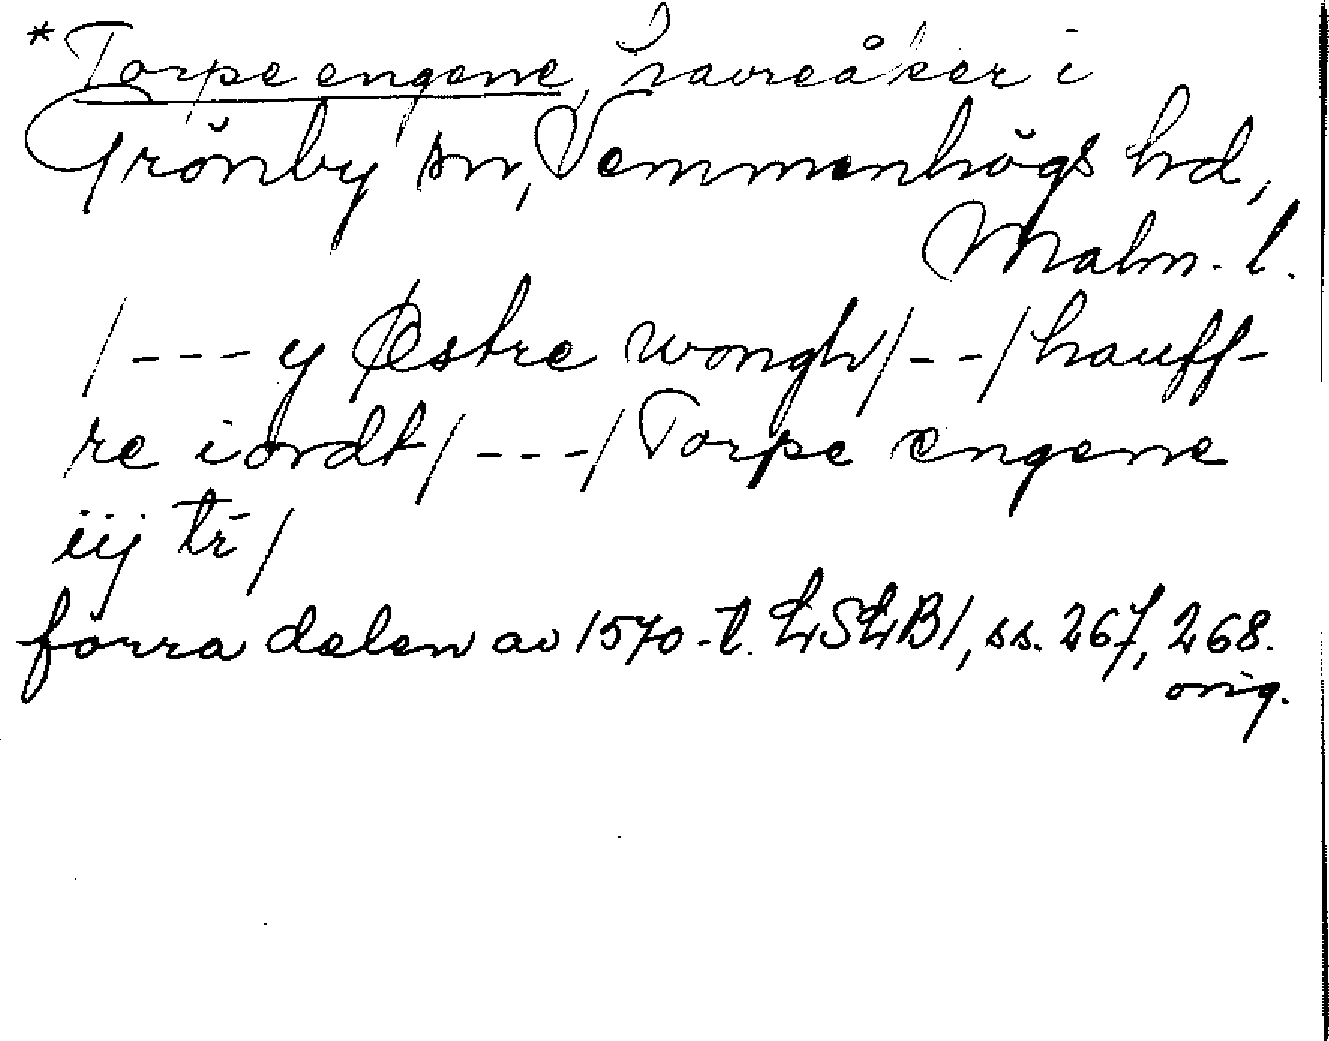 * Torpe engene, havreåker i
Grönby sn, Vemmenhögs hd,
Malm. l.
/--- y Østre wongh/--/hauff-
re iordt/---/Torpe engene
iij tř/
förra delen av 1570-t. LSLB1, ss. 267, 268.
orig.